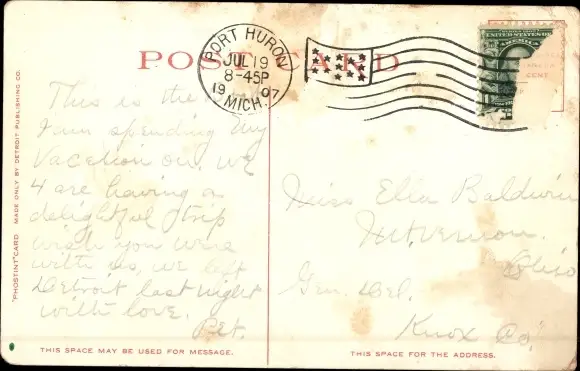 POST CARD
PORT HURON
JUL 19
8-45P
1907
MICH.
UNITED STATES OF
AMERICA
CENT
"PHOSTINT" CARD MADE ONLY BY DETROIT PUBLISHING CO.
This is the
I am spending my
Vacation on. we
4 are having a
delightful trip
wish you were
with us, we left
Detroit last night
with love.
Pet.
Miss Ella Baldwin
Mt. Vernon.
Ohio
Gen. Del.
Knox Co.
THIS SPACE MAY BE USED FOR MESSAGE.
THIS SPACE FOR THE ADDRESS.